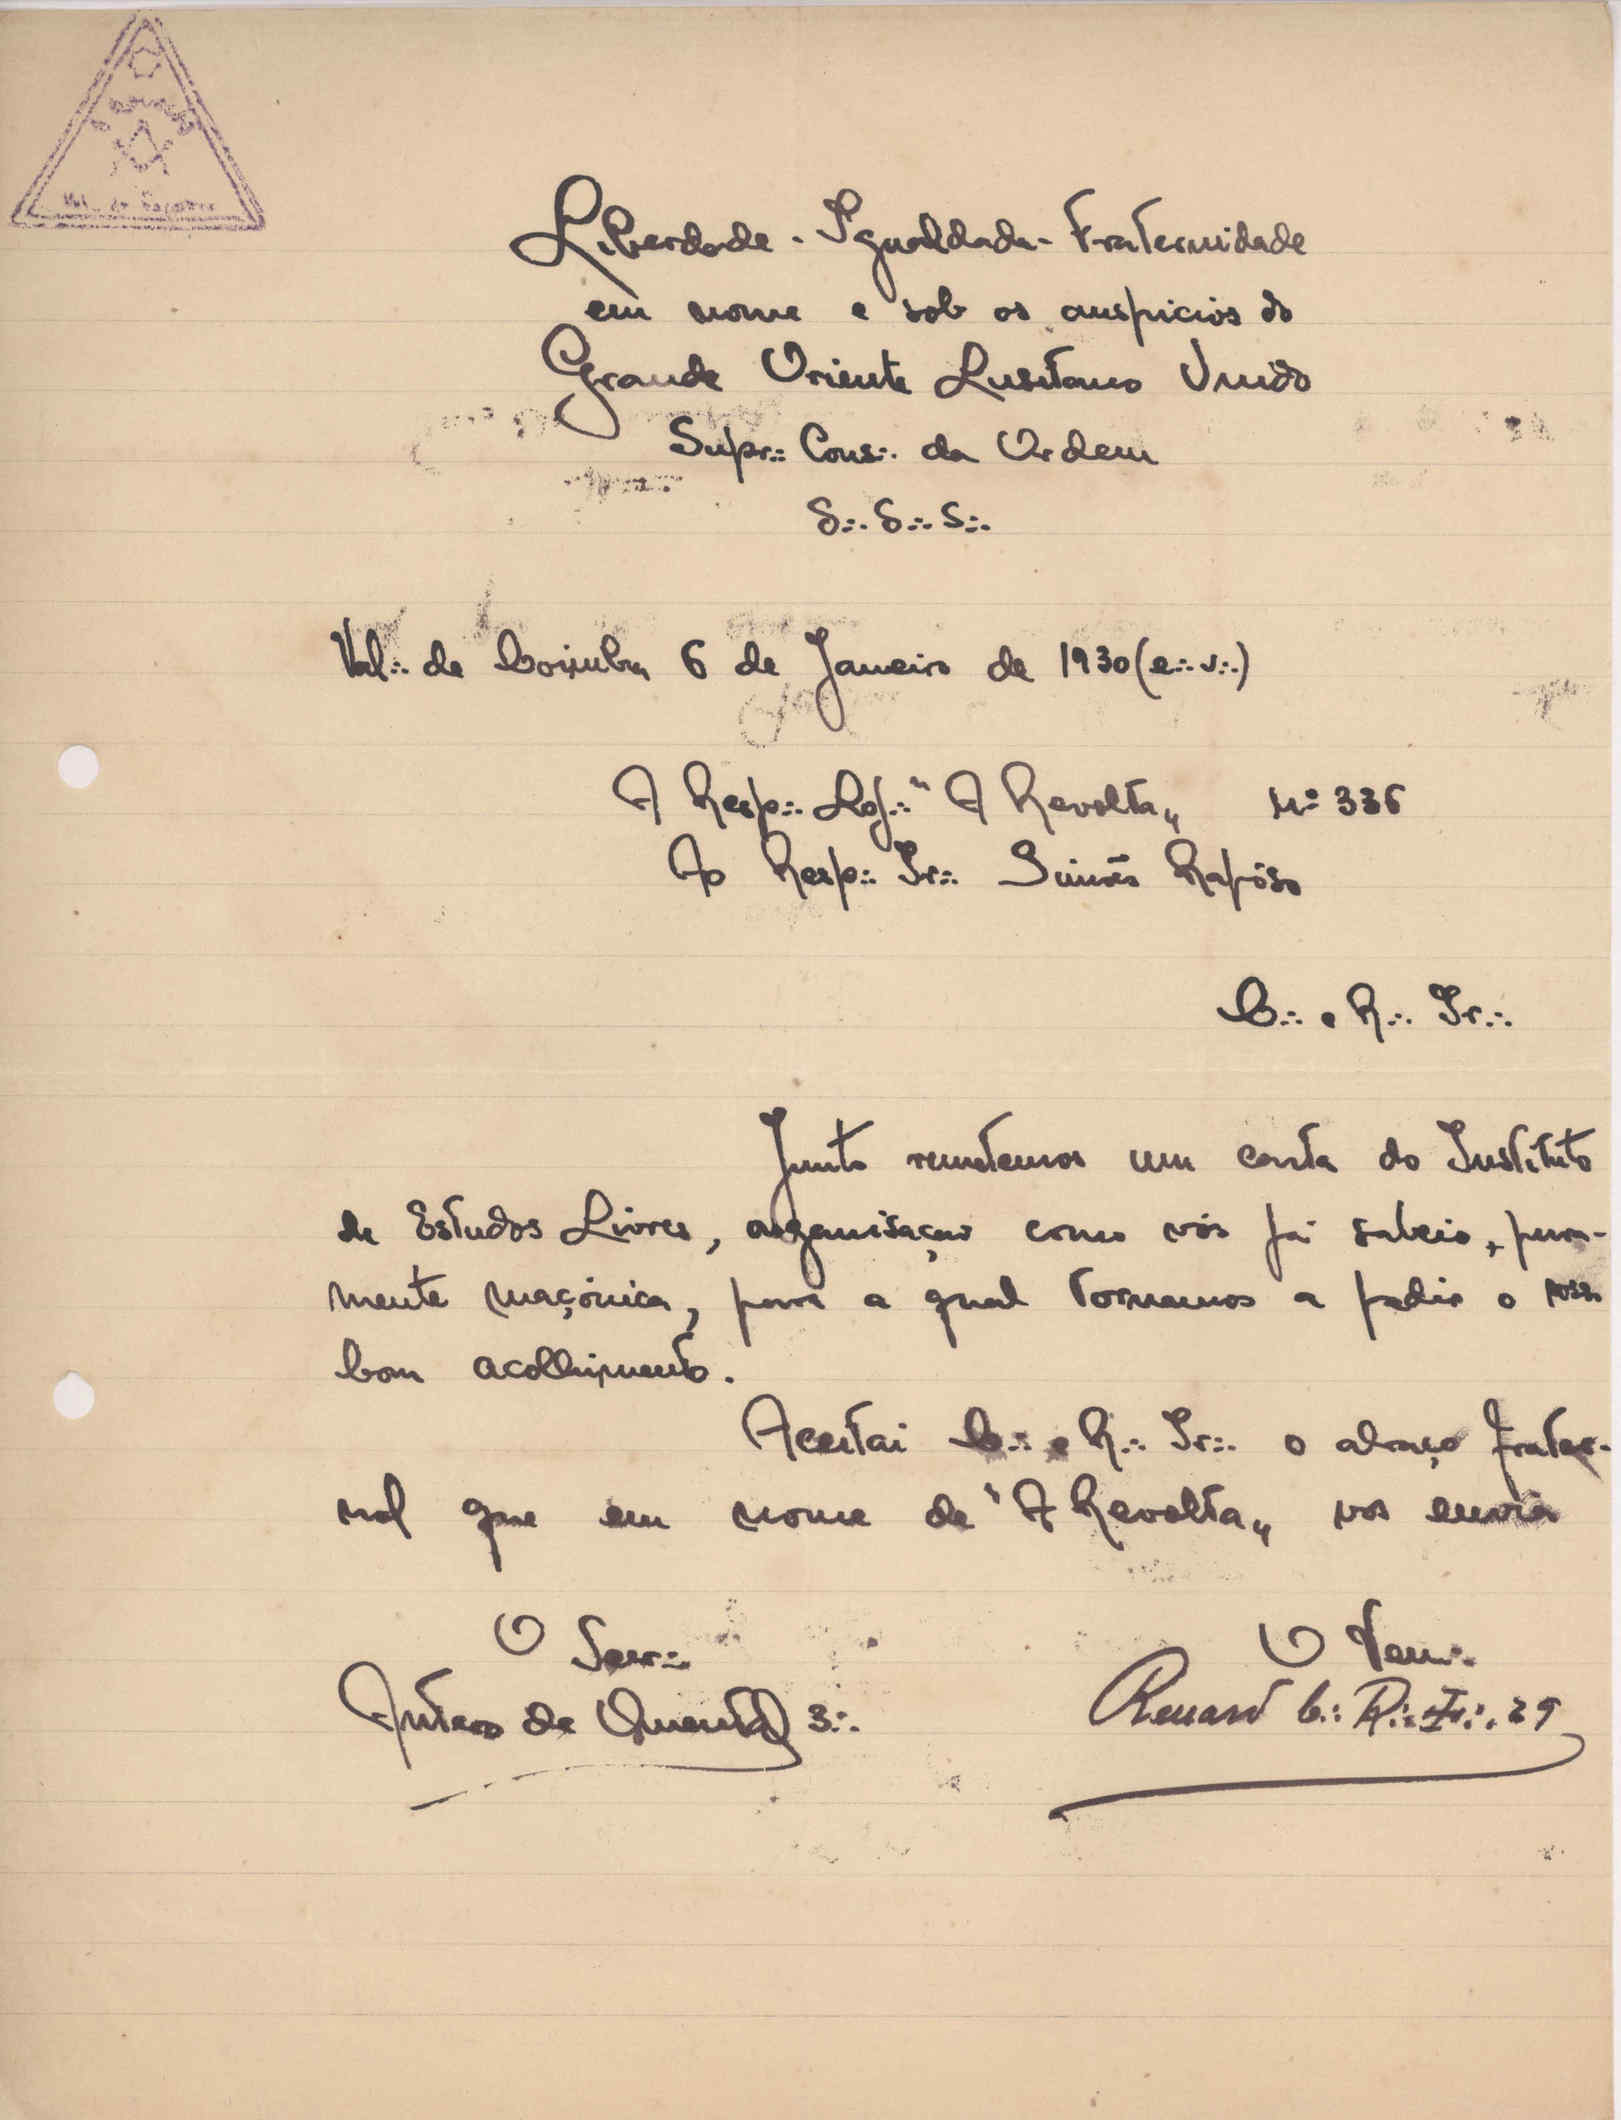 Liberdade - Igualdade - Fraternidade
em nome e sob os auspicios do
Grande Oriente Lusitano Unido
Supr∴ Cons∴ da Ordem
S∴ S∴ S∴
Val∴ de Coimbra 6 de Janeiro de 1930 (e∴ v∴)
A Resp∴ Loj∴ "A Revolta„ Nº 336
Ao Resp∴ Ir∴ Simões Rapôso
C∴ e R∴ Ir∴
Junto remetemos um carta do Instituto
de Estudos Livres, organisação como vós já sabeis, pura-
mente maçónica, para a qual tornamos a pedir o vosso
bom acolhimento.
Aceitai C∴ e R∴ Ir∴ o abraço frater-
nal que em nome de "A Revolta„ vos envia
O Secr∴
O Ven∴
Antero de Quental 3∴
Renard C∴ R∴ 29